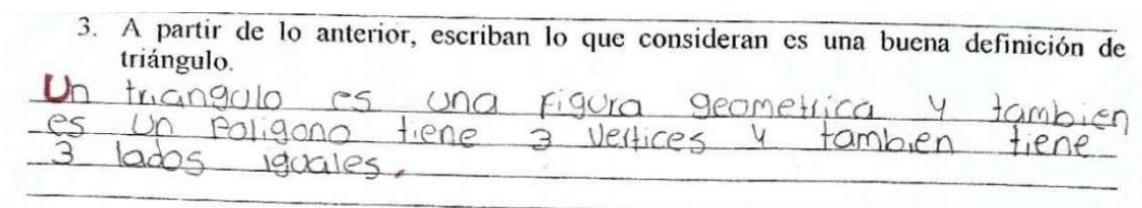 3. A partir de lo anterior, escriban lo que consideran es una buena definición de
triángulo.
Un triangulo es una figura geometrica y tambien
es un Poligono tiene 3 vertices y tambien tiene
3 lados iguales.